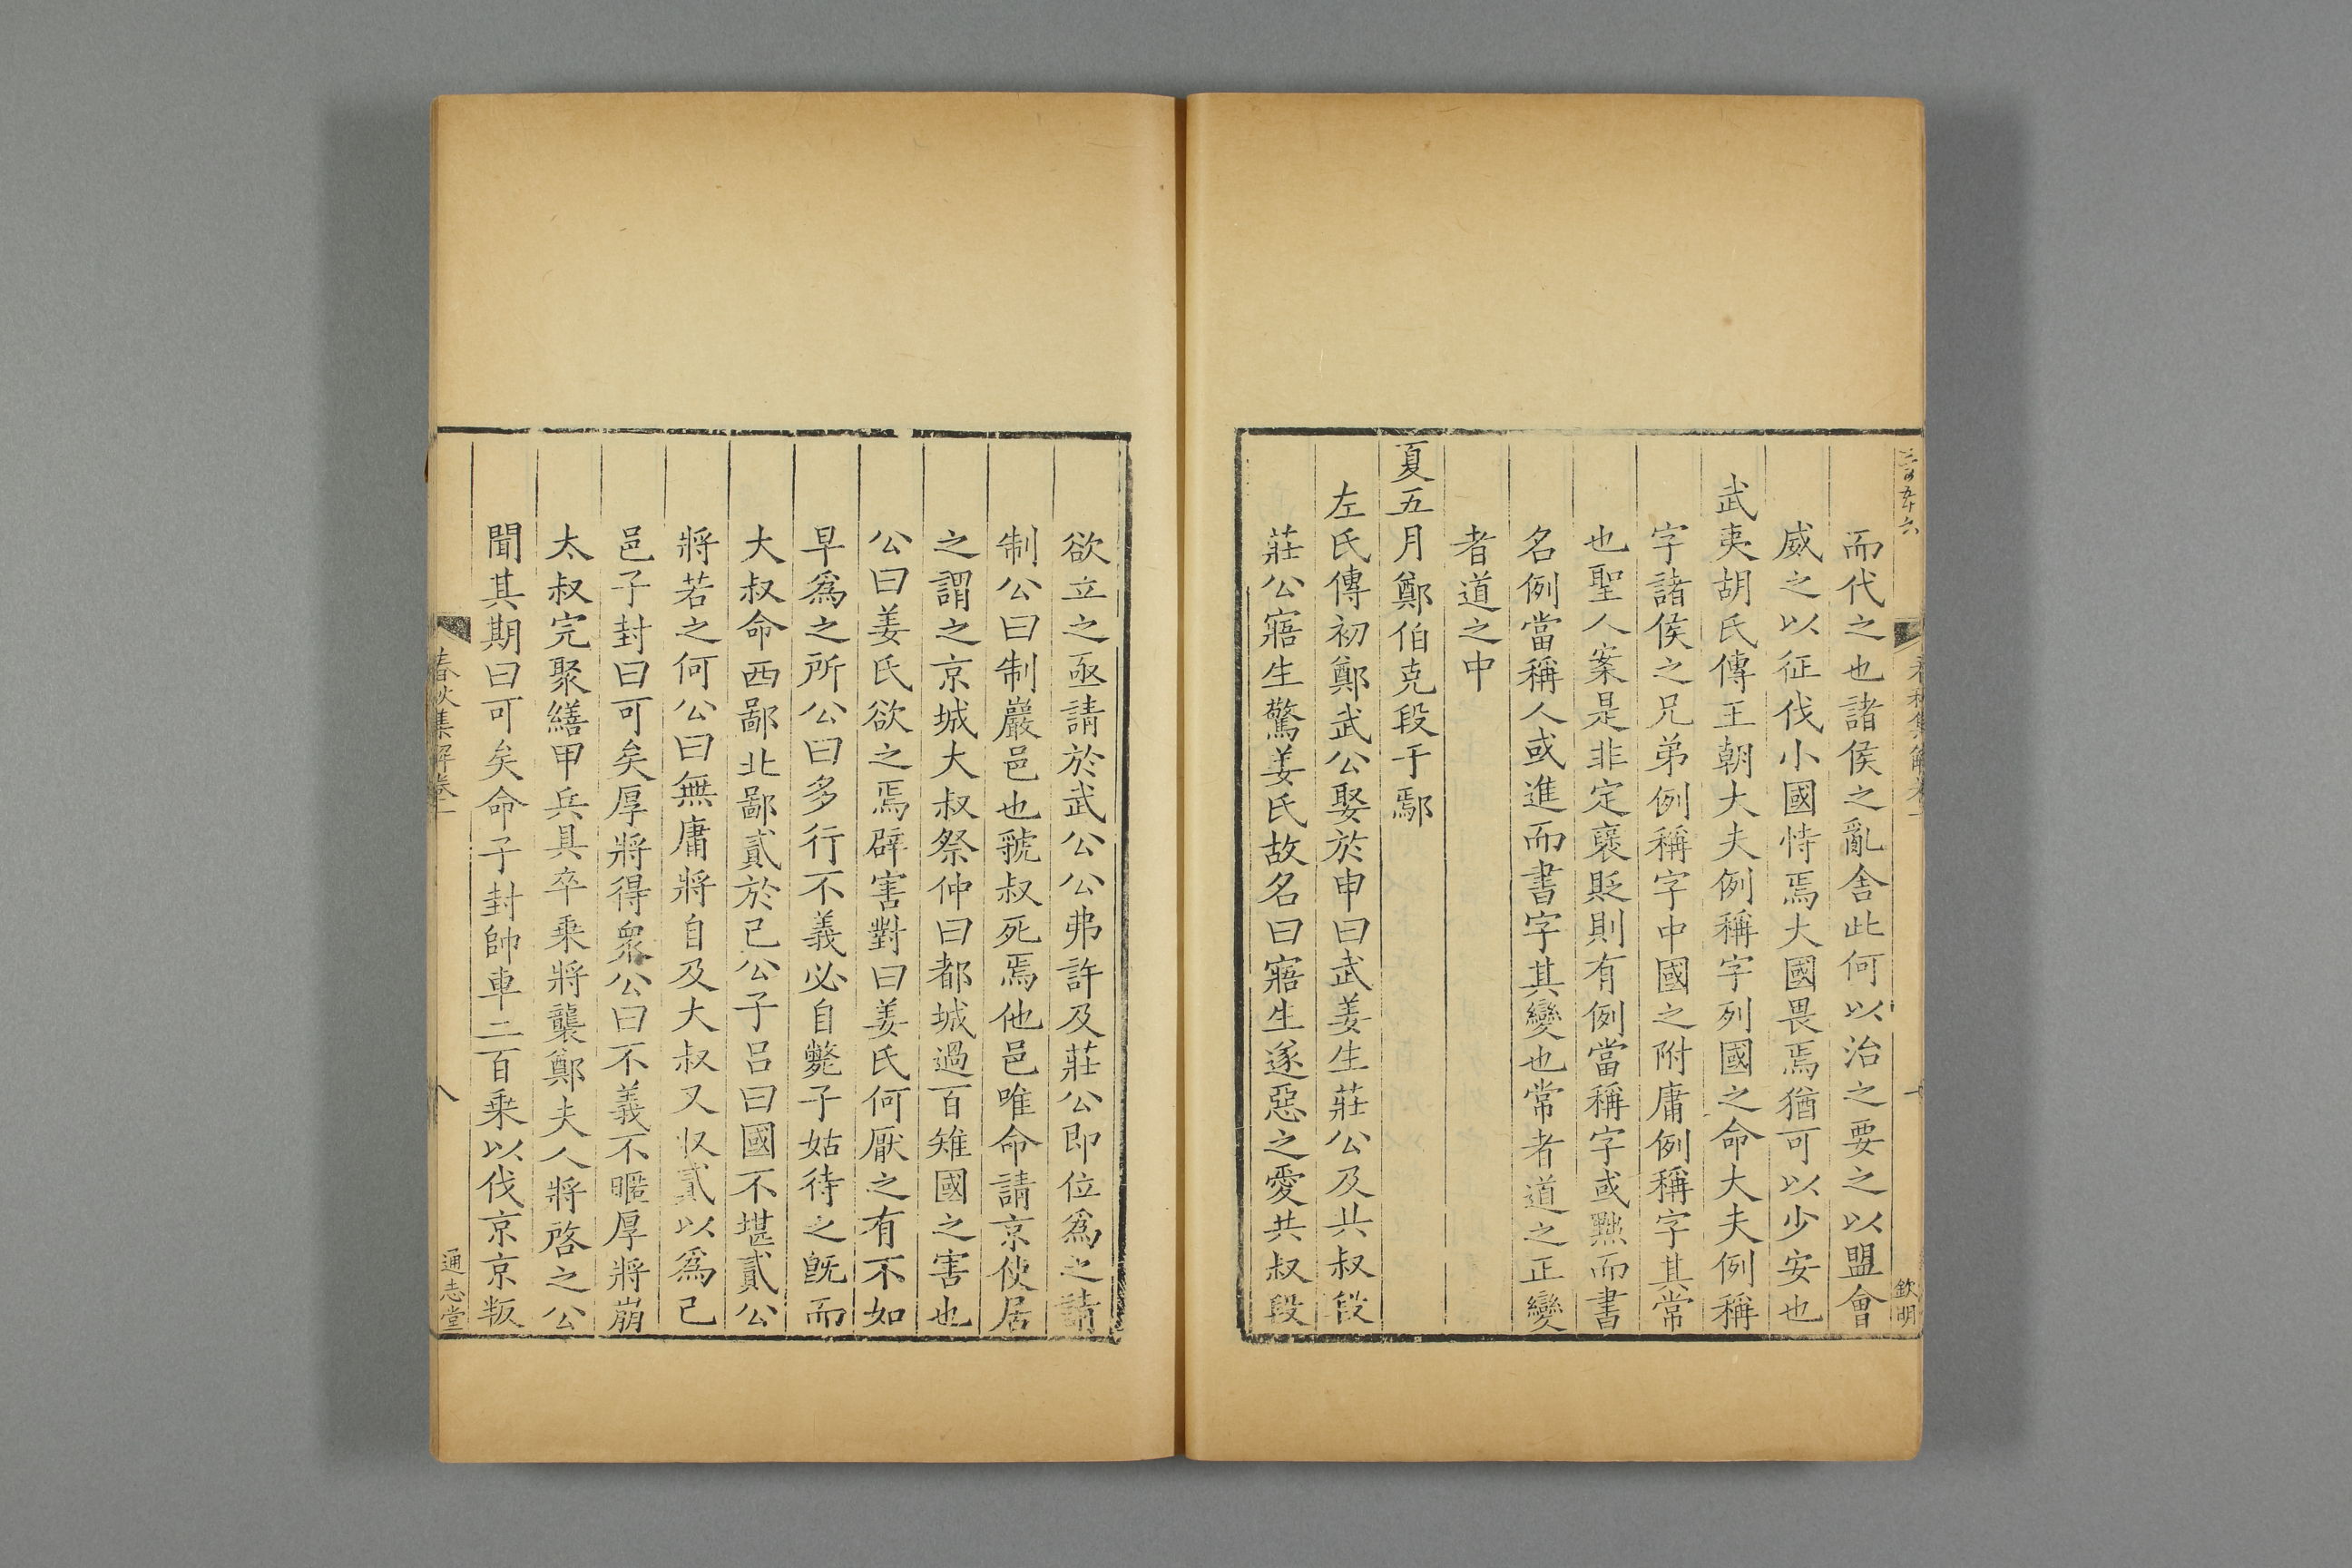 而代之也諸侯之亂舍此何以治之要之以盟會
威之以征伐小國恃焉大國畏焉猶可以少安也
武夷胡氏傳王朝大夫例稱字列國之命大夫例稱
字諸侯之兄弟例稱字中國之附庸例稱字其常
也聖人案是非定襃貶則有例當稱字或黜而書
名例當稱人或進而書字其變也常者道之正變
者道之中
夏五月鄭伯克段于鄢
左氏傳初鄭武公娶於申曰武姜生莊公及共叔段
莊公寤生驚姜氏故名曰寤生遂惡之愛共叔段
欽明
欲立之亟請於武公公弗許及莊公即位爲之請
制公曰制巖邑也虢叔死焉他邑唯命請京使居
之謂之京城大叔祭仲曰都城過百雉國之害也
公曰姜氏欲之焉辟害對曰姜氏何厭之有不如
早爲之所公曰多行不義必自斃子姑待之旣而
大叔命西鄙北鄙貳於己公子呂曰國不堪貳公
將若之何公曰無庸將自及大叔又收貳以爲己
邑子封曰可矣厚將得衆公曰不義不暱厚將崩
太叔完聚繕甲兵具卒乗將襲鄭夫人將啓之公
聞其期曰可矣命子封帥車二百乗以伐京京叛
春秋集解卷一
八
通志堂